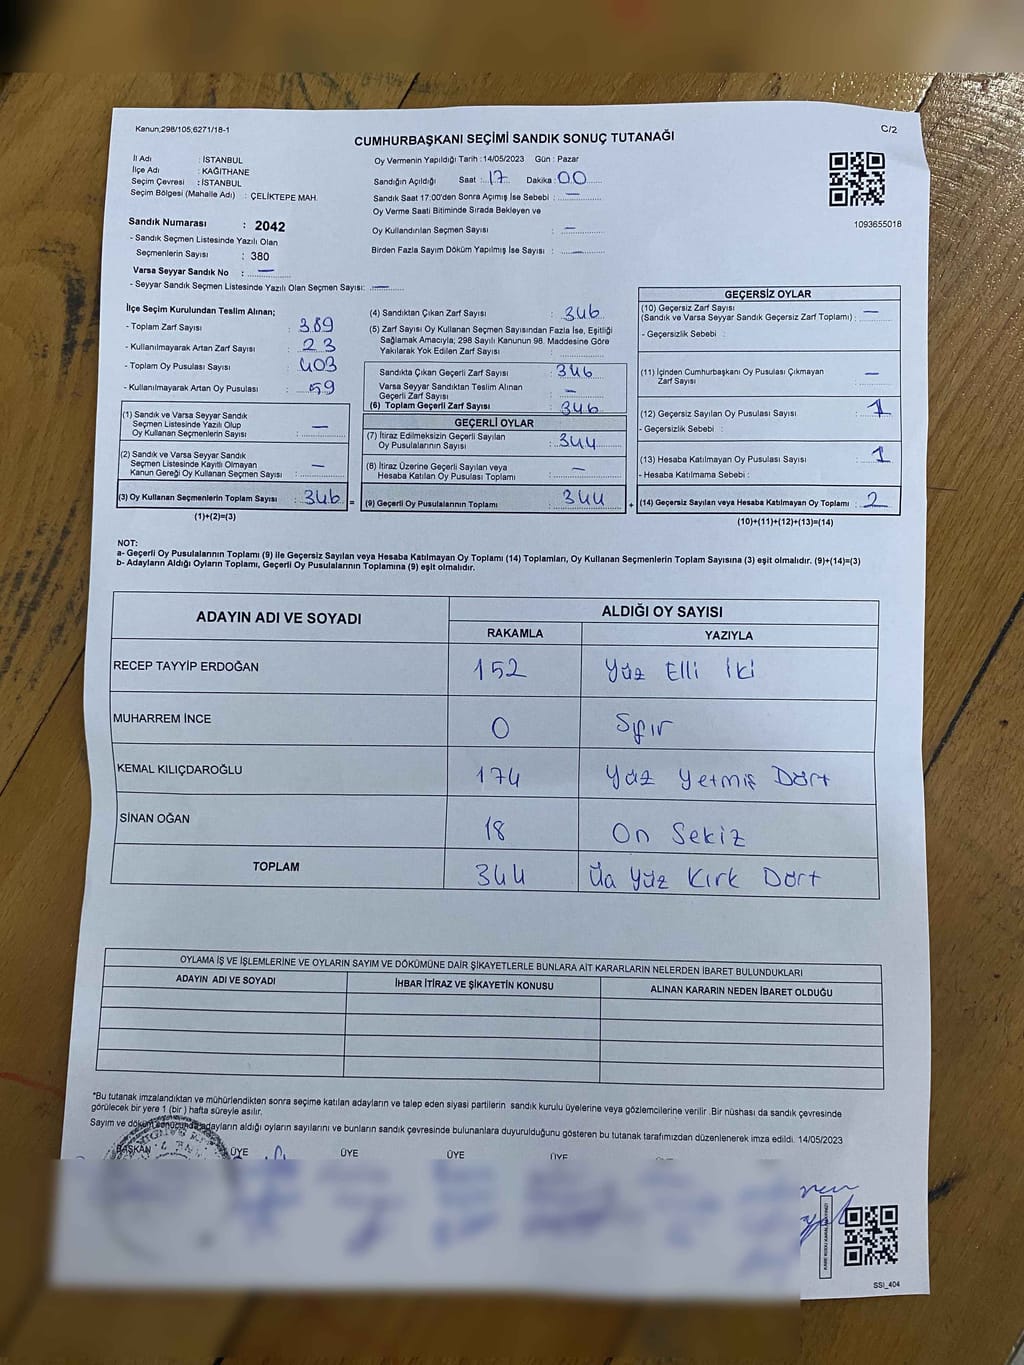 Kanun,298/105;6271/18-1
C/2
CUMHURBAŞKANI SEÇİMİ SANDIK SONUÇ TUTANAĞI
İl Adı : İSTANBUL
İlçe Adı : KAĞITHANE
Seçim Çevresi : İSTANBUL
Seçim Bölgesi (Mahalle Adı) : ÇELİKTEPE MAH.
Sandık Numarası : 2042
- Sandık Seçmen Listesinde Yazılı Olan
Seçmenlerin Sayısı : 380
Varsa Seyyar Sandık No : —
- Seyyar Sandık Seçmen Listesinde Yazılı Olan Seçmen Sayısı: —
Oy Vermenin Yapıldığı Tarih : 14/05/2023 Gün : Pazar
Sandığın Açıldığı Saat : 17 Dakika : 00
Sandık Saat 17:00'den Sonra Açımış İse Sebebi : —
Oy Verme Saati Bitiminde Sırada Bekleyen ve
Oy Kullandırılan Seçmen Sayısı : —
Birden Fazla Sayım Döküm Yapılmış İse Sayısı : —
1093655018
İlçe Seçim Kurulundan Teslim Alınan;
- Toplam Zarf Sayısı : 369
- Kullanılmayarak Artan Zarf Sayısı : 23
- Toplam Oy Pusulası Sayısı : 403
- Kullanılmayarak Artan Oy Pusulası : 59
(1) Sandık ve Varsa Seyyar Sandık
Seçmen Listesinde Yazılı Olup
Oy Kullanan Seçmenlerin Sayısı : —
(2) Sandık ve Varsa Seyyar Sandık
Seçmen Listesinde Kayıtlı Olmayan
Kanun Gereği Oy Kullanan Seçmen Sayısı : —
(3) Oy Kullanan Seçmenlerin Toplam Sayısı : 346 =
(1)+(2)=(3)
(4) Sandıktan Çıkan Zarf Sayısı : 346
(5) Zarf Sayısı Oy Kullanan Seçmen Sayısından Fazla İse, Eşitliği
Sağlamak Amacıyla; 298 Sayılı Kanunun 98. Maddesine Göre
Yakılarak Yok Edilen Zarf Sayısı :
Sandıkta Çıkan Geçerli Zarf Sayısı : 346
Varsa Seyyar Sandıktan Teslim Alınan
Geçerli Zarf Sayısı : —
(6) Toplam Geçerli Zarf Sayısı : 346
GEÇERLİ OYLAR
(7) İtiraz Edilmeksizin Geçerli Sayılan
Oy Pusulalarının Sayısı : 344
(8) İtiraz Üzerine Geçerli Sayılan veya
Hesaba Katılan Oy Pusulası Toplamı : —
(9) Geçerli Oy Pusulalarının Toplamı : 344 +
GEÇERSİZ OYLAR
(10) Geçersiz Zarf Sayısı
(Sandık ve Varsa Seyyar Sandık Geçersiz Zarf Toplamı) : —
- Geçersizlik Sebebi :
(11) İçinden Cumhurbaşkanı Oy Pusulası Çıkmayan
Zarf Sayısı : —
(12) Geçersiz Sayılan Oy Pusulası Sayısı : 1
- Geçersizlik Sebebi :
(13) Hesaba Katılmayan Oy Pusulası Sayısı : 1
- Hesaba Katılmama Sebebi :
(14) Geçersiz Sayılan veya Hesaba Katılmayan Oy Toplamı : 2
(10)+(11)+(12)+(13)=(14)
NOT:
a- Geçerli Oy Pusulalarının Toplamı (9) ile Geçersiz Sayılan veya Hesaba Katılmayan Oy Toplamı (14) Toplamları, Oy Kullanan Seçmenlerin Toplam Sayısına (3) eşit olmalıdır. (9)+(14)=(3)
b- Adayların Aldığı Oyların Toplamı, Geçerli Oy Pusulalarının Toplamına (9) eşit olmalıdır.
ADAYIN ADI VE SOYADI
ALDIĞI OY SAYISI
RAKAMLA YAZIYLA
RECEP TAYYİP ERDOĞAN 152 Yüz Elli İki
MUHARREM İNCE 0 Sıfır
KEMAL KILIÇDAROĞLU 174 Yüz Yetmiş Dört
SİNAN OĞAN 18 On Sekiz
TOPLAM 344 Üç Yüz Kırk Dört
OYLAMA İŞ VE İŞLEMLERİNE VE OYLARIN SAYIM VE DÖKÜMÜNE DAİR ŞİKAYETLERLE BUNLARA AİT KARARLARIN NELERDEN İBARET BULUNDUKLARI
ADAYIN ADI VE SOYADI İHBAR İTİRAZ VE ŞİKAYETİN KONUSU ALINAN KARARIN NEDEN İBARET OLDUĞU
"Bu tutanak imzalandıktan ve mühürlendikten sonra seçime katılan adayların ve talep eden siyasi partilerin sandık kurulu üyelerine veya gözlemcilerine verilir .Bir nüshası da sandık çevresinde
görülecek bir yere 1 (bir ) hafta süreyle asılır.
Sayım ve döküm sonucunda adayların aldığı oyların sayılarını ve bunların sandık çevresinde bulunanlara duyurulduğunu gösteren bu tutanak tarafımızdan düzenlenerek imza edildi. 14/05/2023
BAŞKAN ÜYE ÜYE ÜYE ÜYE
SSİ_404